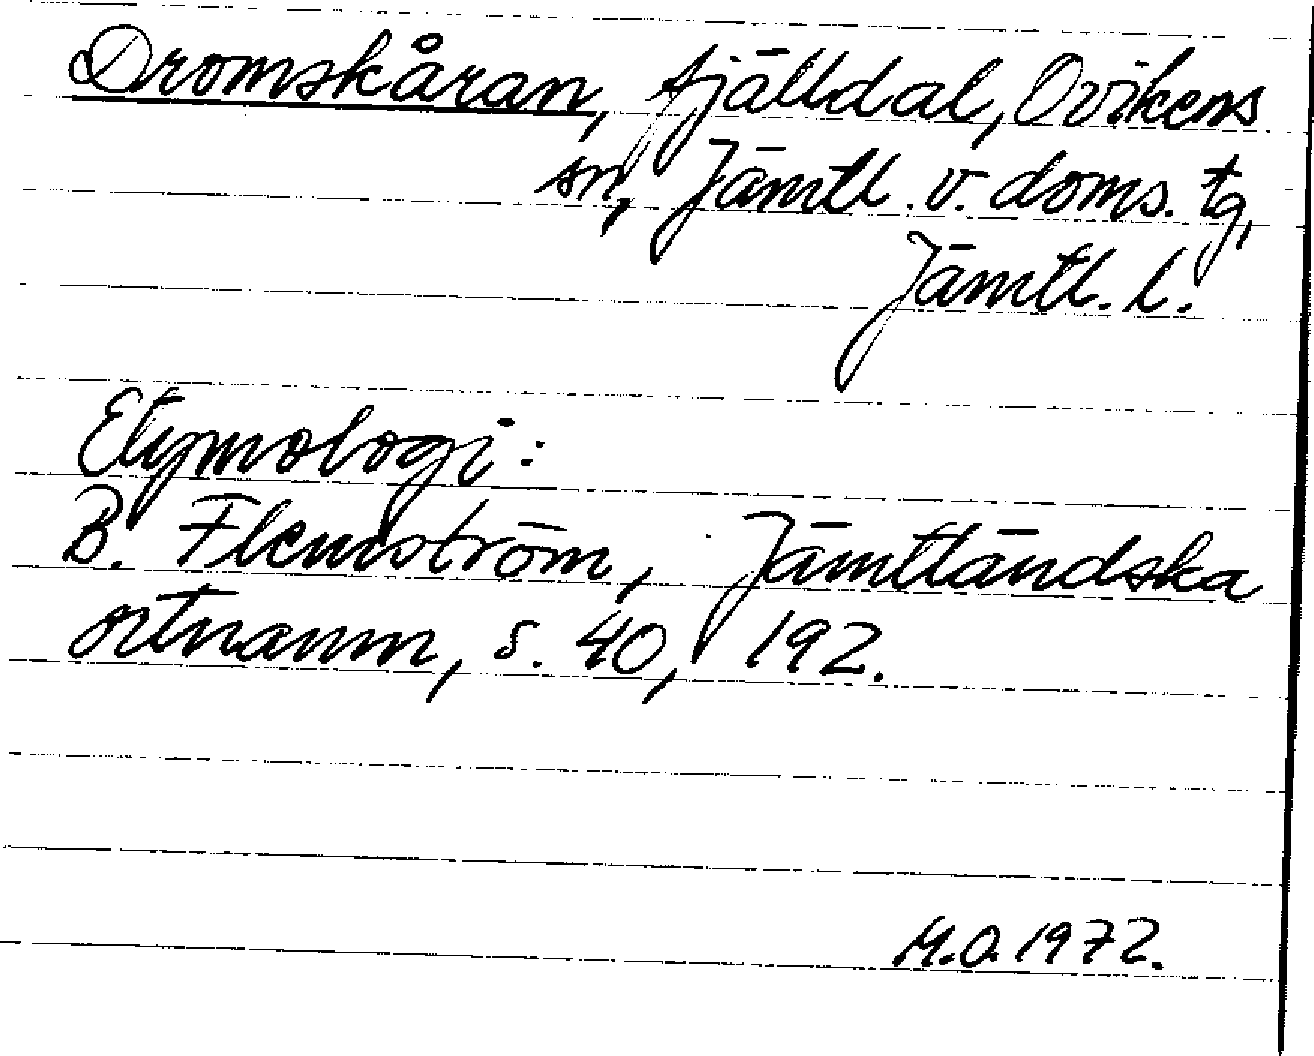 Dromskåran, fjälldal, Ovikens
sn, Jämtl. v. doms. tg,
Jämtl. l.
Etymologi:
B. Flemström, Jämtländska
ortnamn, s. 40, 192.
M.O. 1972.